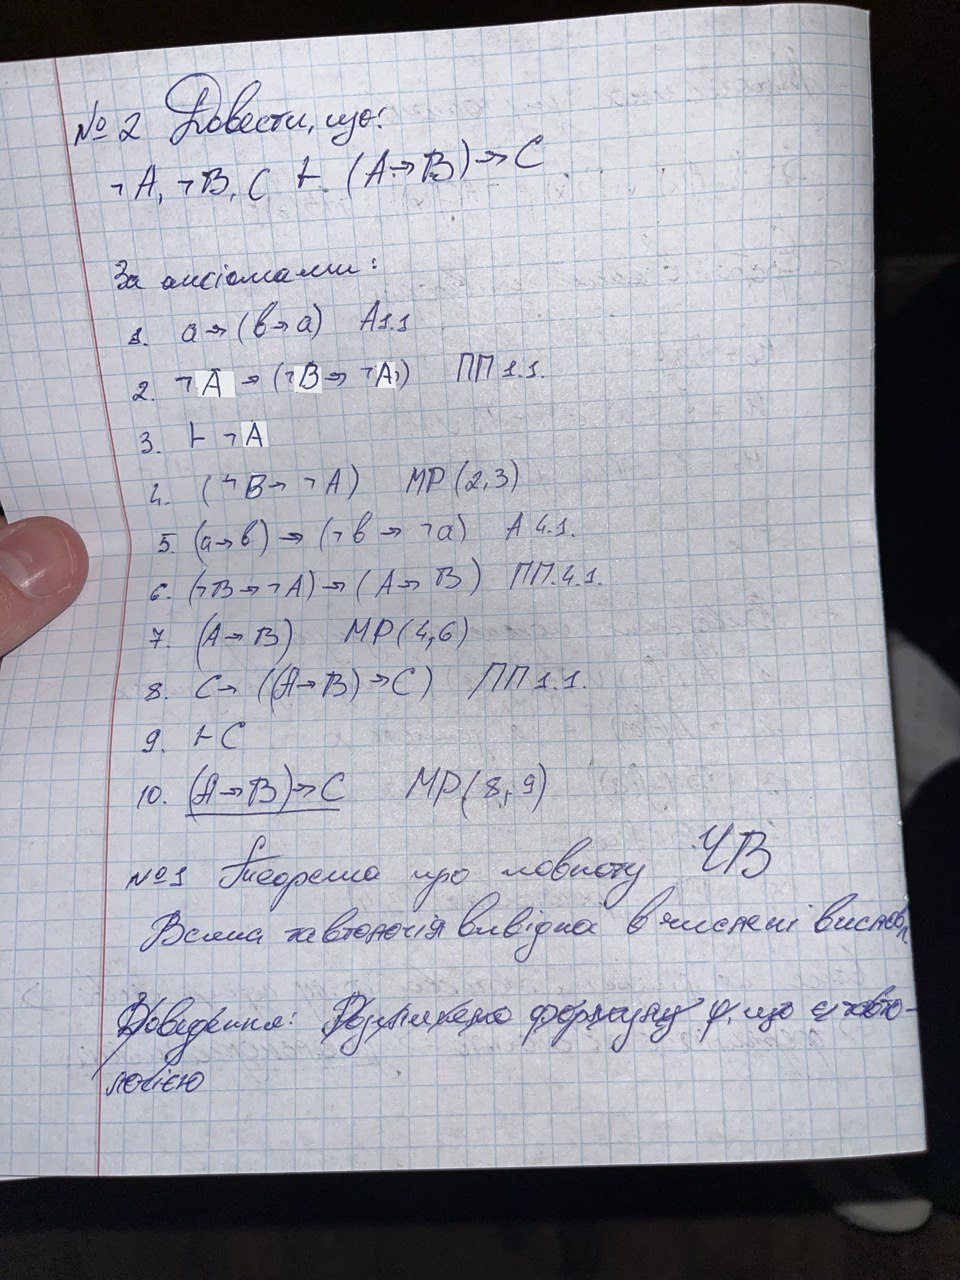 № 2 Довести, що:
¬A, ¬B, C ⊢ (A→B)→C
За аксіомами:
1. a→(b→a) A1.1
2. ¬A→(¬B→¬A) ПП 1.1.
3. ⊢ ¬A
4. (¬B→¬A) MP(2,3)
5. (a→b)→(¬b→¬a) A 4.1.
6. (¬B→¬A)→(A→B) ПП.4.1.
7. (A→B) MP(4,6)
8. C→((A→B)→C) ПП1.1.
9. ⊢ C
10. (A→B)→C MP(8,9)
№1 Теорема про повноту ЧВ
Всяка тавтологія вивідна в численні вислов
Доведення: формулу φ, що є тавто-
логією